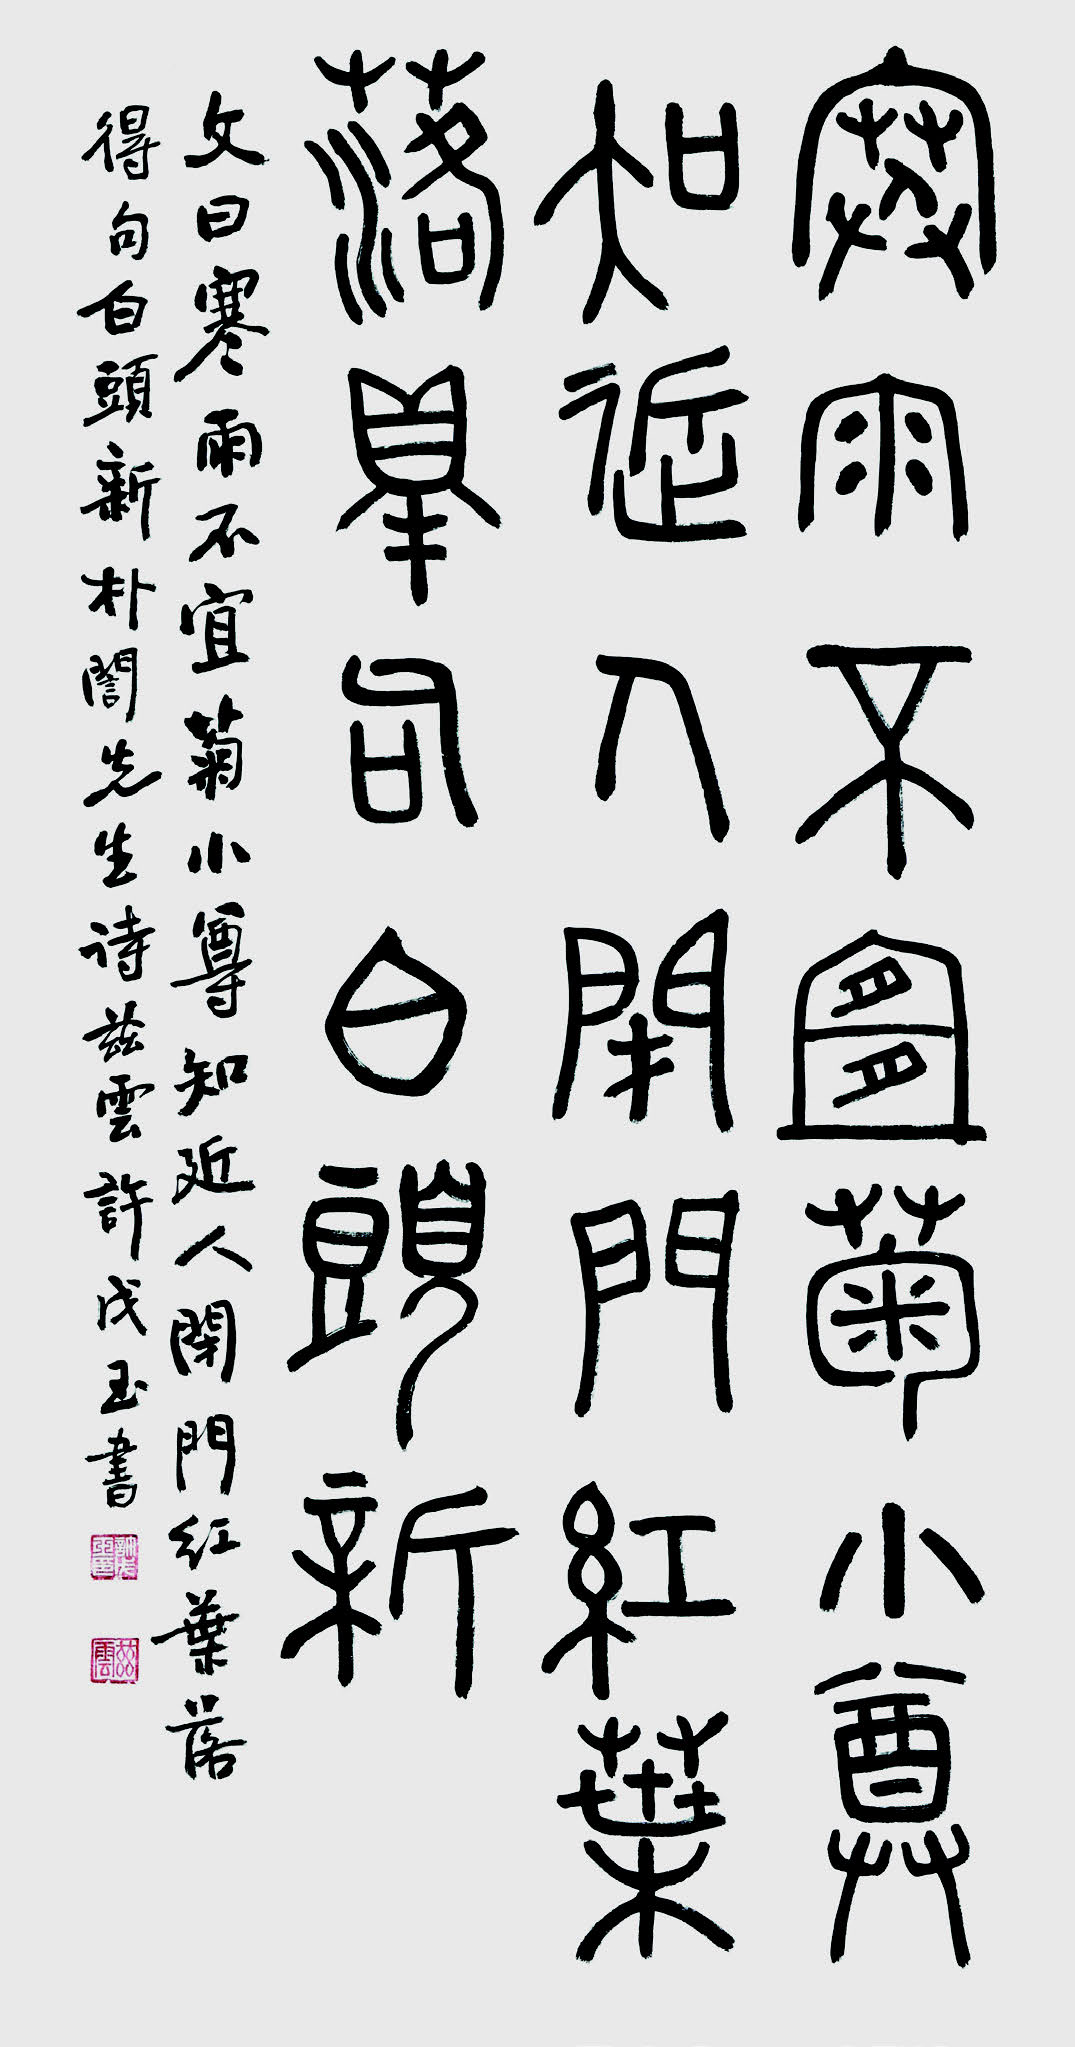 寒雨不宜菊小尊
知近人閉門紅葉
落得句白頭新
文曰寒雨不宜菊小尊知近人閉門紅葉落
得句白頭新朴誾先生诗茲雲許戊玉書
茲雲